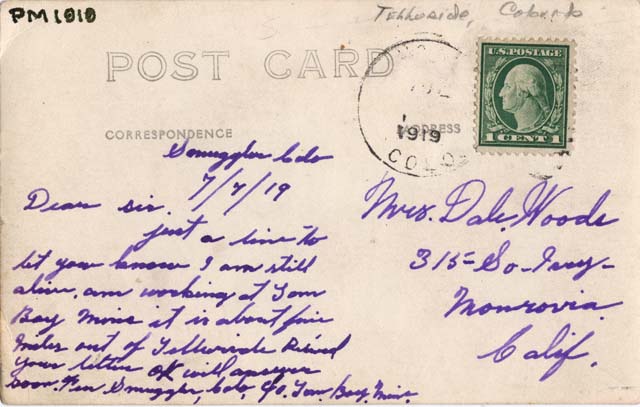 PM 1919
Telluride, Colorado
POST CARD
U.S. POSTAGE
1 CENT 1
1919
COLO
CORRESPONDENCE
ADDRESS
Smuggler Colo
7/7/19
Dear sis.
just a line to
let you know I am still
alive, am working at Tom
Boy Mine it is about five
miles out of Telluride Recived
your letter OK will answer
soon. Smuggler, Colo, c/o. Tom Boy Mine.
Mrs. Dale Woods
315- So- Ivy-
Monrovia
Calif.